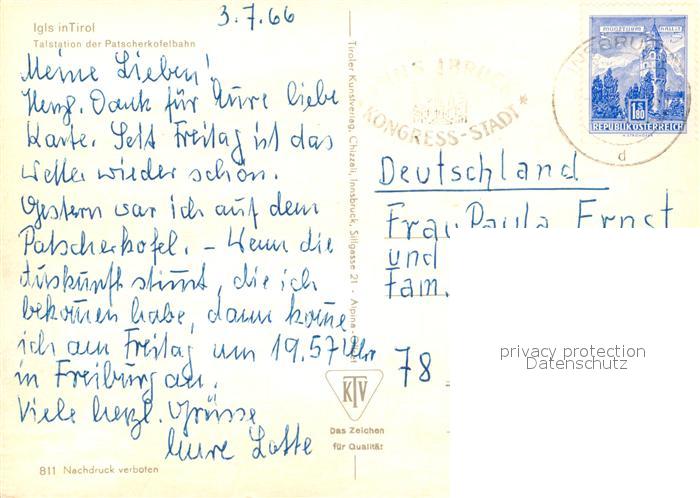 3.7.66
Igls inTirol
Talstation der Patscherkofelbahn
Meine Lieben!
Herzl. Dank für Eure liebe
Karte. Seit Freitag ist das
Wetter wieder schön.
Gestern war ich auf dem
Patscherkofel. – Wenn die
Auskunft stimmt, die ich
bekommen habe, dann komme
ich am Freitag um 19.57 Uhr
in Freiburg an.
Viele herzl. Grüsse
Eure Lotte
811 Nachdruck verboten
Tiroler Kunstverlag, Chizzali, Innsbruck, Sillgasse 21 · Alpina-
KTV
Das Zeichen
für Qualität
INNSBRUCK
KONGRESS-STADT
INNSBRUCK
d
MÜNZTURM HALL i.T.
S 1.80
REPUBLIK ÖSTERREICH
Deutschland
Frau Paula Ernst
und
Fam.
78
privacy protection
Datenschutz